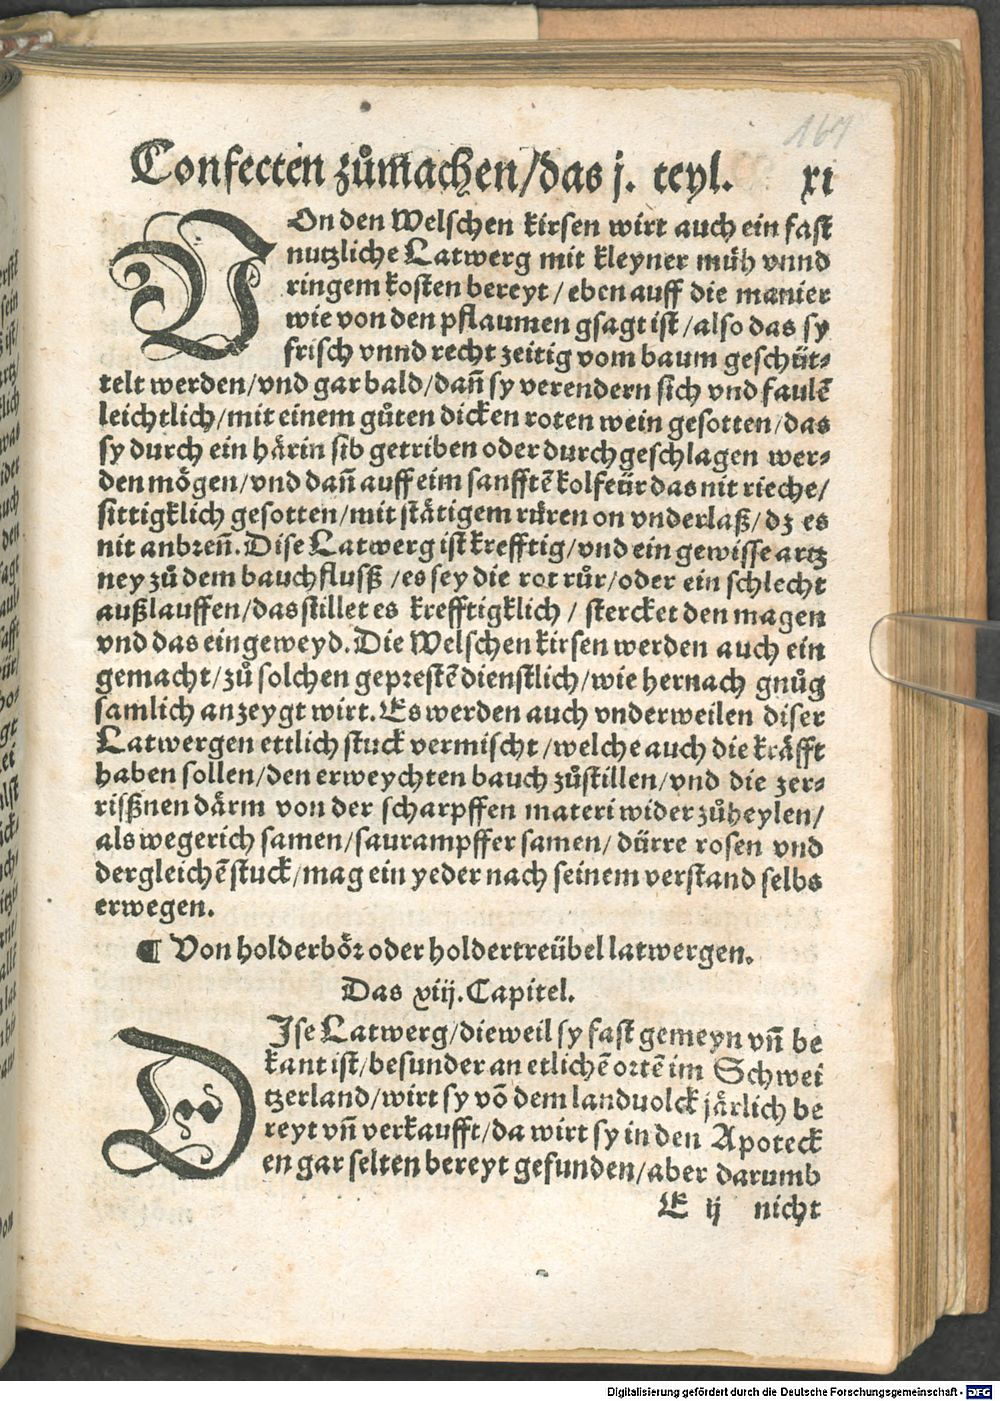 167
Confecten zůmachen/das j. teyl. xi
VOn den Welschen kirsen wirt auch ein fast
nutzliche Latwerg mit kleyner müh vnnd
ringem kosten bereyt/eben auff die manier
wie von den pflaumen gsagt ist/also das sy
frisch vnnd recht zeitig vom baum geschüt⸗
telt werden/vnd gar bald/dañ sy verendern sich vnd faulē
leichtlich/mit einem gůten dicken roten wein gesotten/das
sy durch ein härin sib getriben oder durchgeschlagen wer⸗
den mögen/vnd dañ auff eim sanfftē kolfeür das nit rieche/
sittigklich gesotten/mit stätigem rüren on vnderlaß/dz es
nit anbreñ. Dise Latwerg ist krefftig/vnd ein gewisse artz
ney zů dem bauchflusß/es sey die rot růr/oder ein schlecht
außlauffen/das stillet es krefftigklich/stercket den magen
vnd das eingeweyd. Die Welschen kirsen werden auch ein
gemacht/zů solchen geprestē dienstlich/wie hernach gnůg
samlich anzeygt wirt. Es werden auch vnderweilen diser
Latwergen ettlich stuck vermischt/welche auch die kräfft
haben sollen/den erweychten bauch zůstillen/vnd die zer⸗
risßnen därm von der scharpffen materi wider zůheylen/
als wegerich samen/saurampffer samen/dürre rosen vnd
dergleichē stuck/mag ein yeder nach seinem verstand selbs
erwegen.
¶ Von holderbör oder holdertreübel latwergen.
Das xiij. Capitel.
DIse Latwerg/dieweil sy fast gemeyn vñ be
kant ist/besunder an etlichē ortē im Schwei
tzerland/wirt sy vō dem landuolck järlich be
reyt vñ verkaufft/da wirt sy in den Apoteck
en gar selten bereyt gefunden/aber darumb
E ij nicht
Digitalisierung gefördert durch die Deutsche Forschungsgemeinschaft - DFG